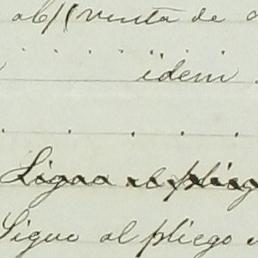 venta de
idem
Sigue al plieg
Sigue al pliego